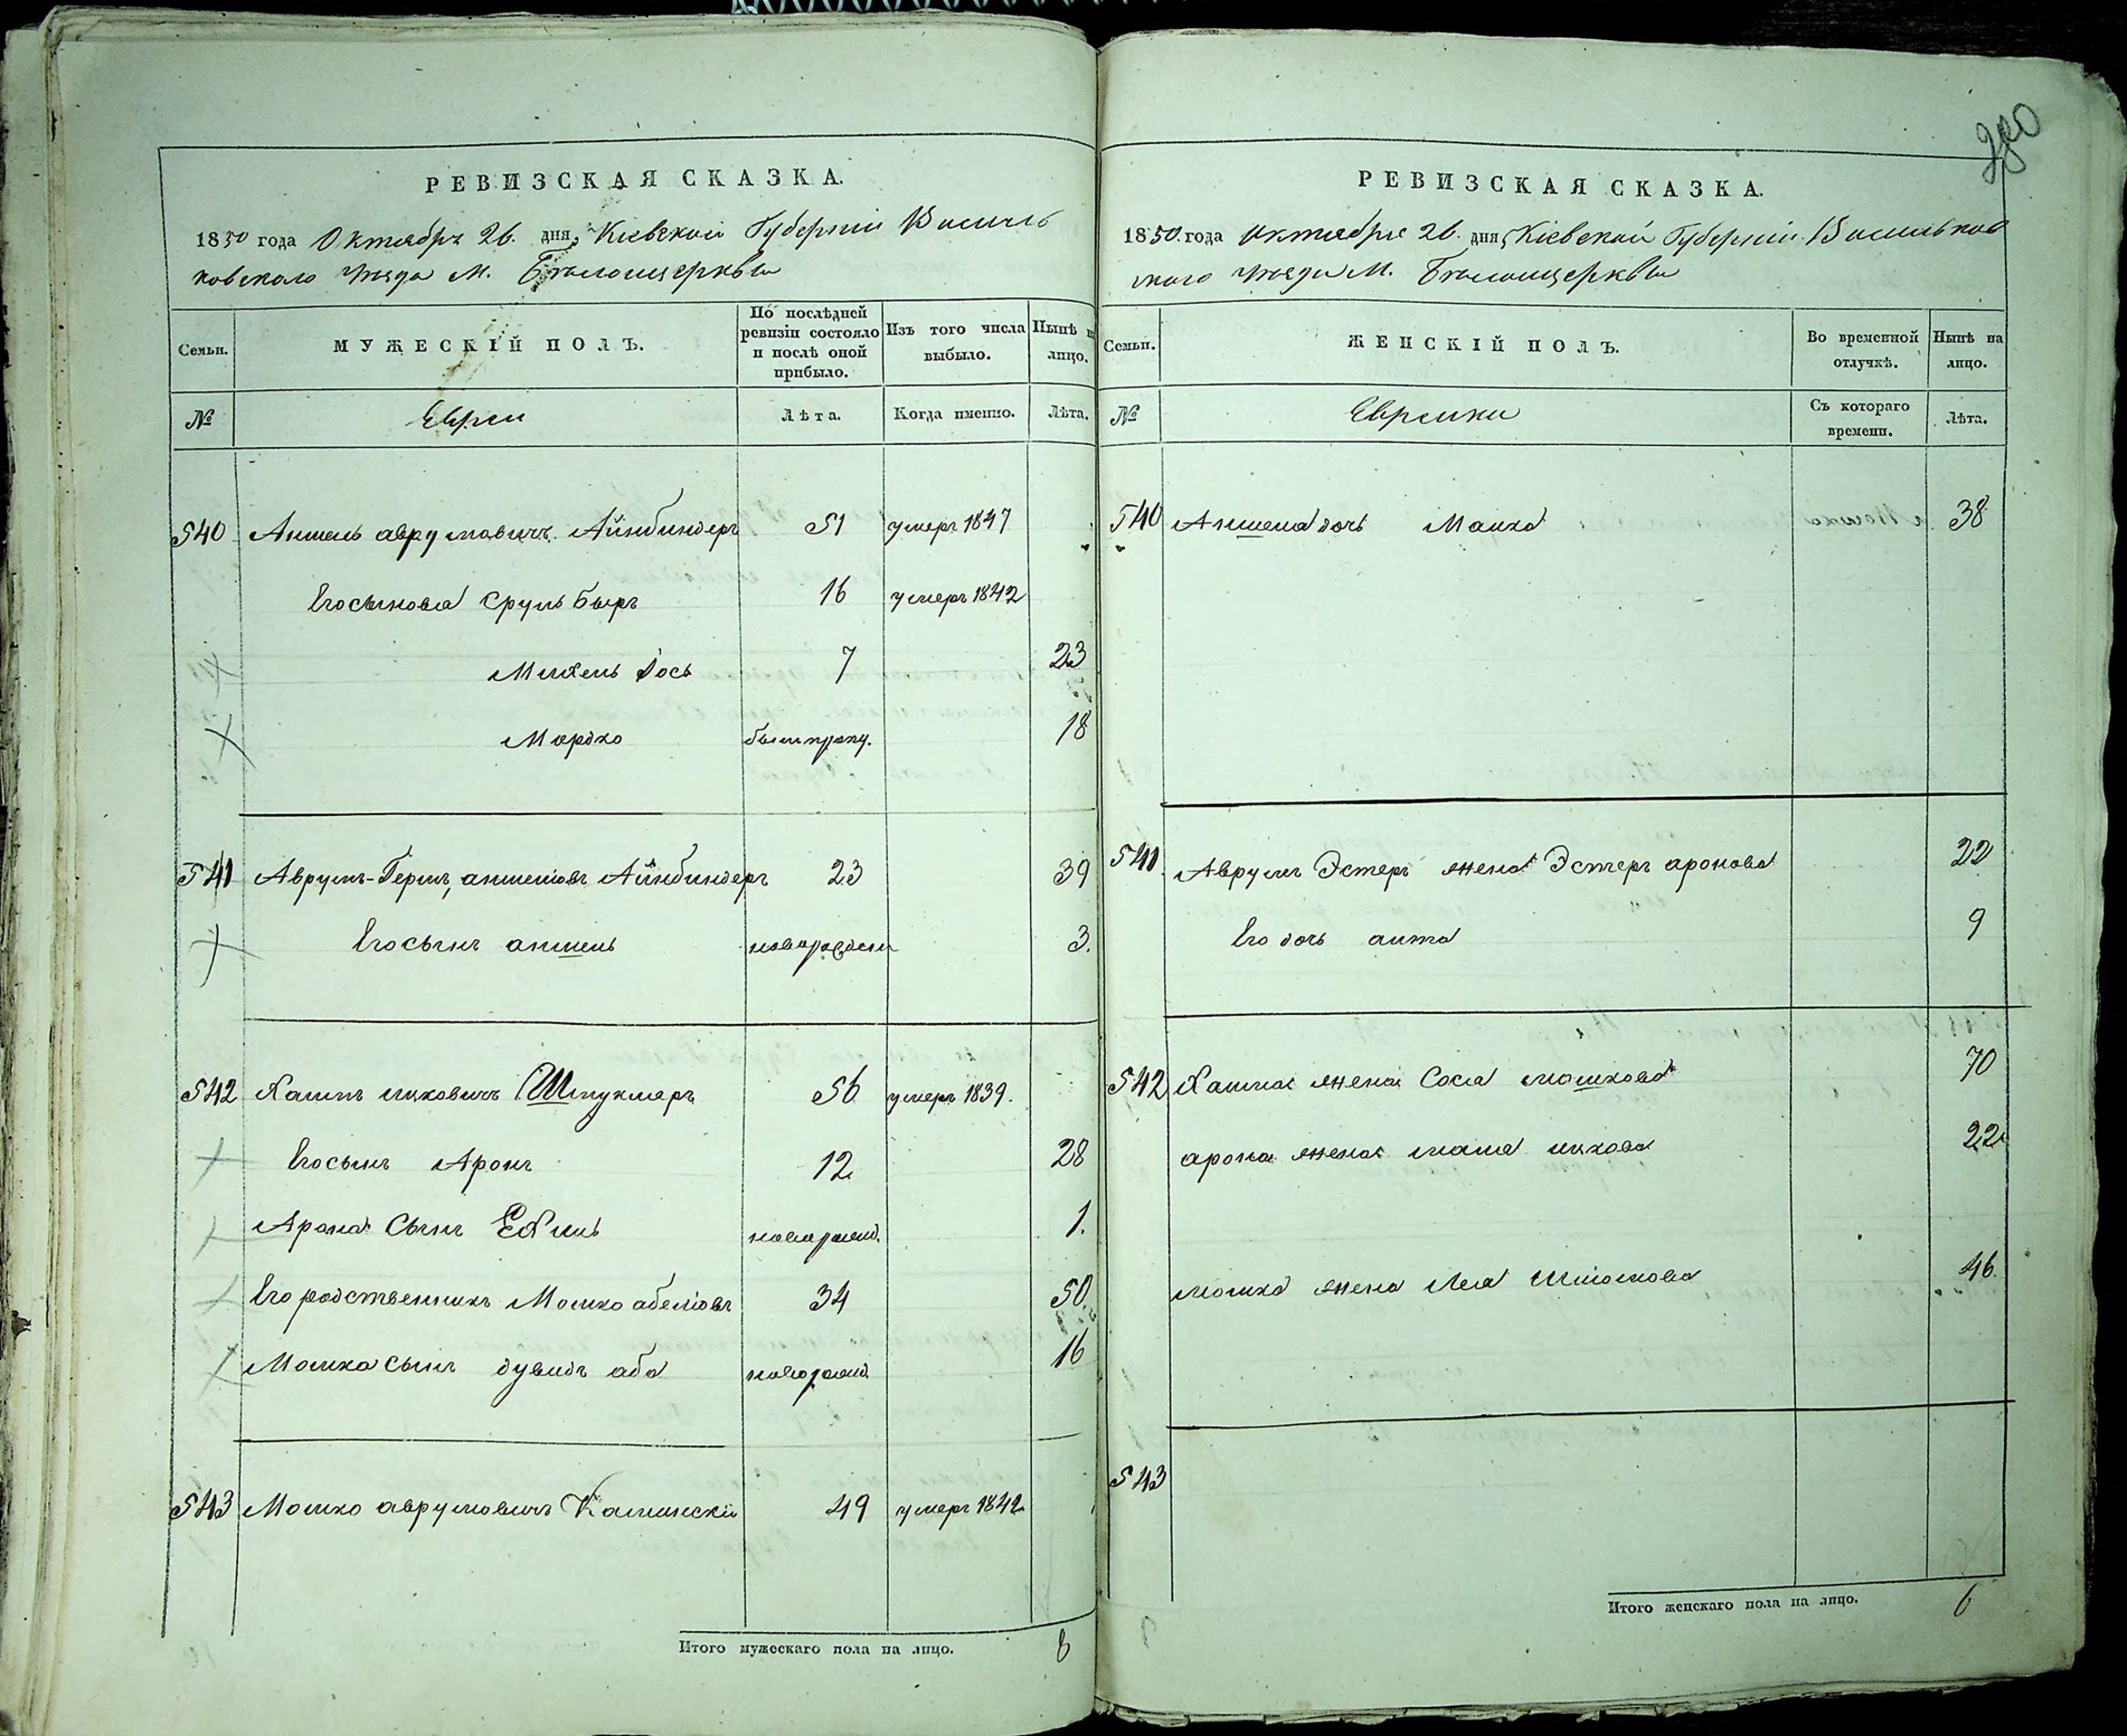 280
РЕВИЗСКАЯ СКАЗКА.
1850 года Октября 26. дня, Кіевской Губерніи Василь
ковскаго уѣзда М. Бѣлоцерквы
Семьи.
МУЖЕСКІЙ ПОЛЪ.
По послѣдней ревизіи состояло и послѣ оной прибыло.
Изъ того числа выбыло.
Нынѣ на лицо.
№
Евреи
Лѣта.
Когда именно.
Лѣта.
540 Аншель аврумовичъ Айнбиндеръ 51 умеръ 1847
Его сыновья Сруль Беръ 16 умеръ 1842
Михель Іось 7 23
Мордко 18
541 Аврумъ-Герш, аншеліовъ Айнбиндеръ 23 39
Его сынъ аншель новорожден 3.
542 Хаимъ ицковичъ Штукмеръ 56 умеръ 1839.
Его сынъ Аронъ 12 28
Арона Сынъ новорожд. 1.
Его родственникъ Мошко абеліовъ 34 50.
Мошка сынъ дувидъ аба новорожд. 16
543 Мошко аврумовичъ Каминскій 49 умеръ 1842
Итого мужескаго пола на лицо. 8
РЕВИЗСКАЯ СКАЗКА.
1850. года Октября 26. дня, Кіевской Губерніи Васильков
скаго уѣзда М. Бѣлоцерквы
Семьи.
ЖЕНСКІЙ ПОЛЪ.
Во временной отлучкѣ.
Нынѣ на лицо.
№
Еврейки
Съ котораго времени.
Лѣта.
540 Аншеля дочь Малка 38
541 Аврумъ Эстеръ жена Эстеръ аронова 22
Его дочь 9
542 Хаима жена Сося мошкова 70
арона жена ицкова 22
мошка жена Лея Шліомова 46.
543
Итого женскаго пола на лицо. 6